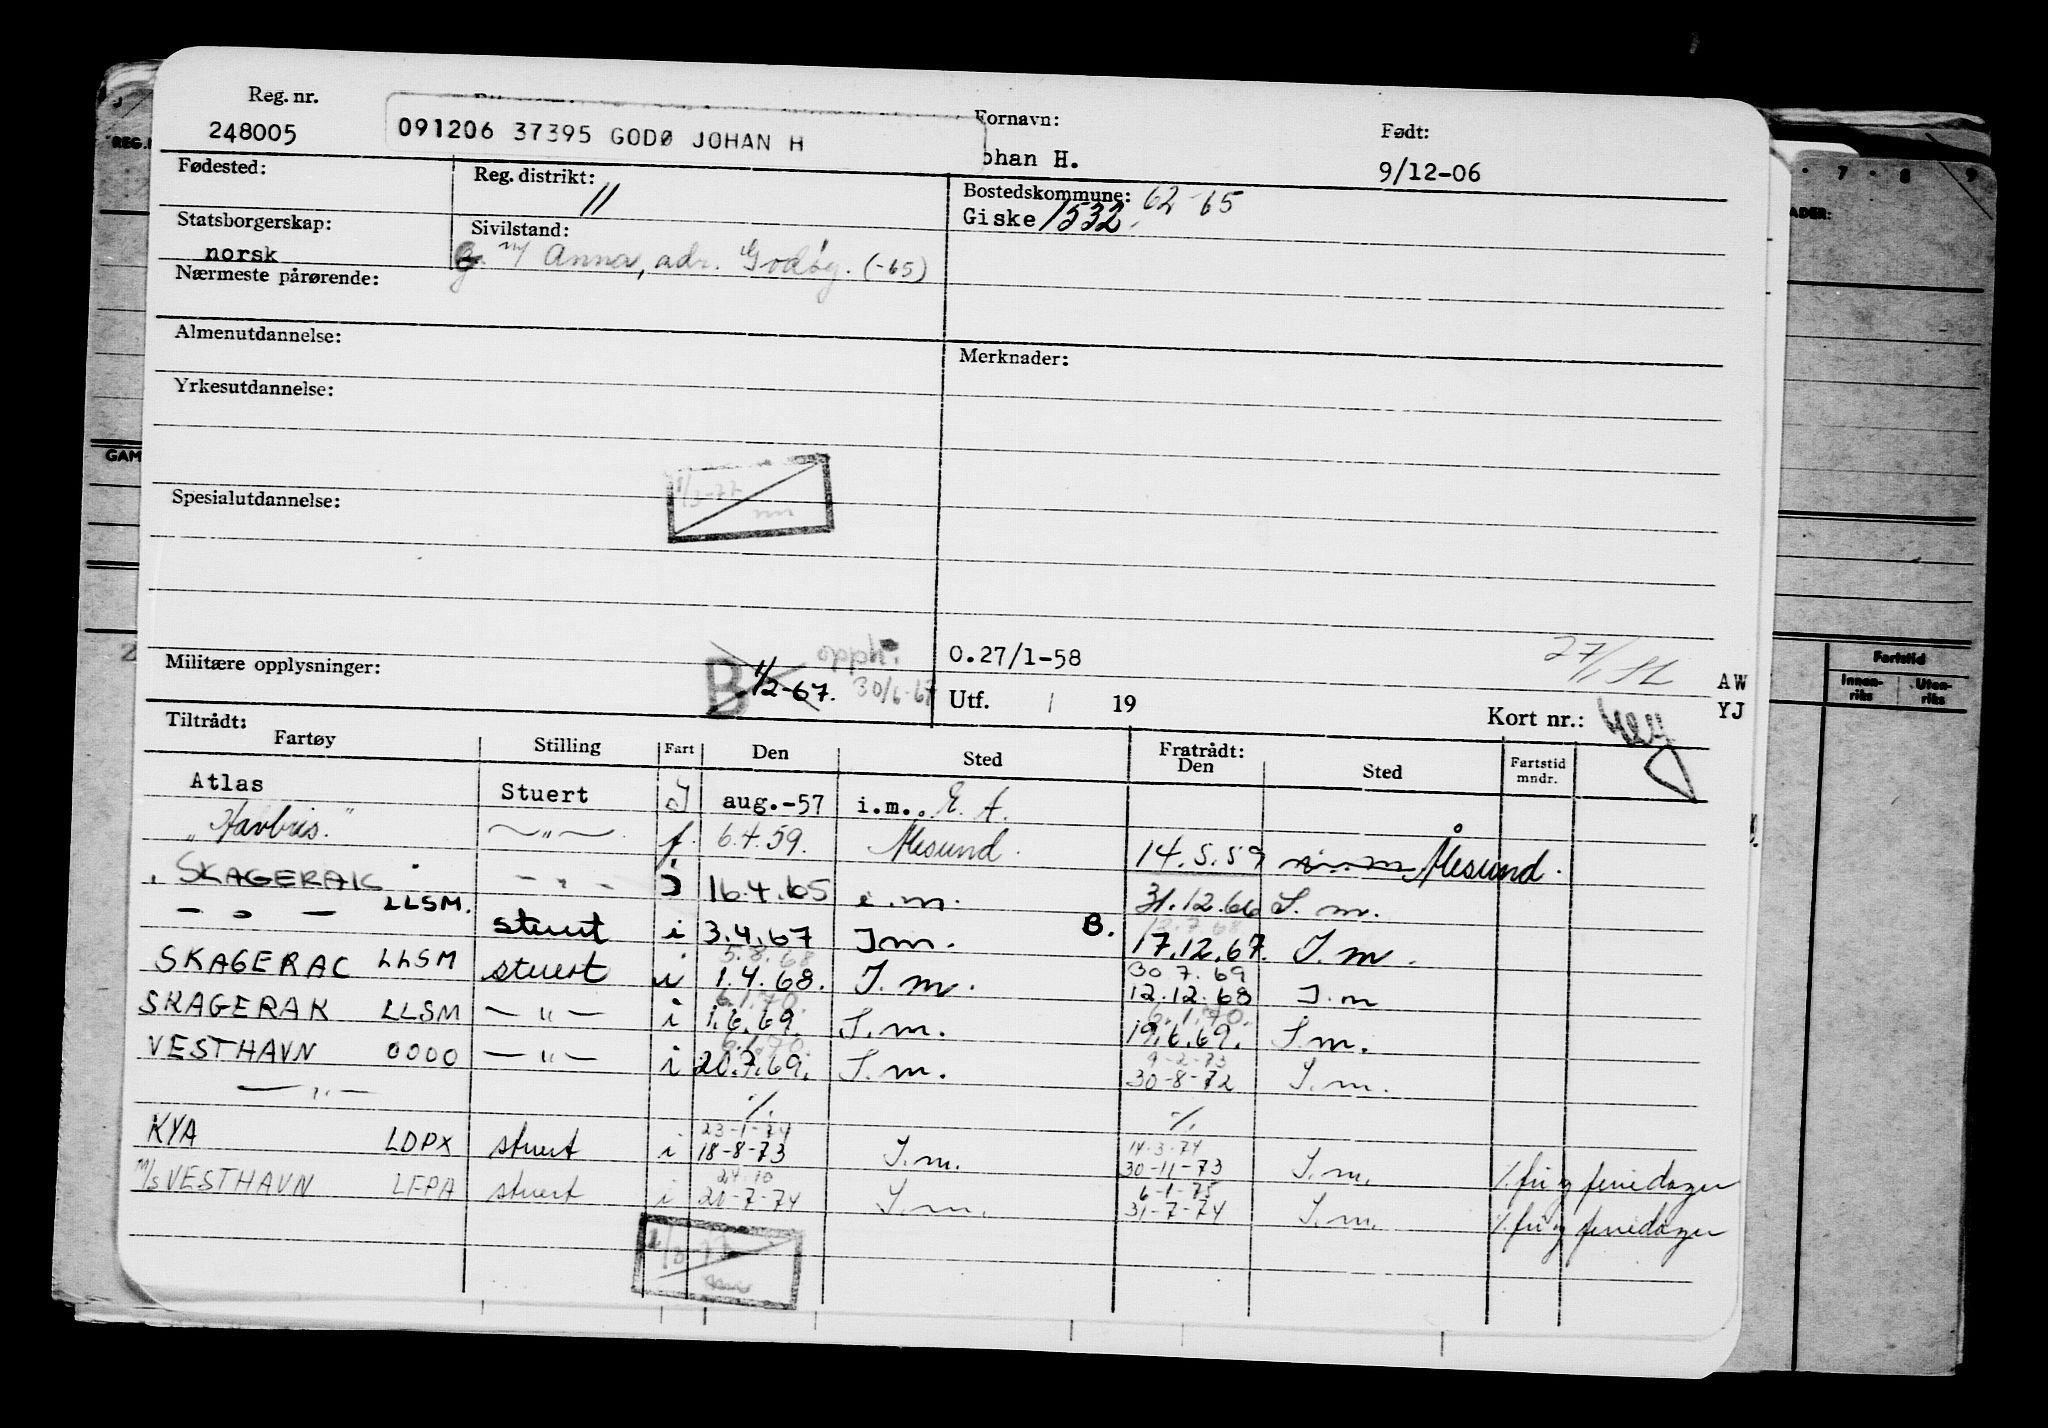 Reg. nr.
248005
091206 37395 GODØ JOHAN H
Fornavn:
ohan H.
Født:
9/12-06
Fødested:
Reg. distrikt:
11
Bostedskommune: 62-65
Giske 1532
Statsborgerskap:
norsk
Sivilstand:
g. m/ Anna, adr. Godøy. (-65)
Nærmeste pårørende:
Almenutdannelse:
Merknader:
Yrkesutdannelse:
Spesialutdannelse:
Militære opplysninger:
B 1/2-67.
opph.
30/6-67
O.27/1-58
Utf. 19
Kort nr.:
AW
YJ
Tiltrådt:
Fartøy Stilling Fart Den Sted
Fratrådt:
Den Sted Fartstid mndr.
Atlas Stuert I aug.-57 i.m.. E. A.
"Havbris." — " — f. 6.4.59. Ålesund. 14.5.59 Ålesund.
SKAGERAK - " - I 16.4.65 i.m. 31.12.66 I. m.
— " — LLSM. stuert i 3.4.67 I m. B. 17.12.67. I. m.
5.8.68 30 7. 69
SKAGERAC LLSM stuert i 1.4.68. I. m. 12.12.68 I.m
6.1.70. 6.1.70.
SKAGERAK LLSM — " — i 1.6.69. I.m. 19.6.69. I m.
6.1.70. 9-2-73
VESTHAVN 0000 — " — i 20.7.69. I. m. 30-8-72 I. m.
— " — ./. ./.
23-1-74 14-3-74
KYA LDPX stuert i 18-8-73 I.m. 30-11-73 I.m. ./. fri og feriedager
24-10 6-1-75
M/S VESTHAVN LFPA stuert i 20-7-74 I.m. 31-7-74 I.m. ./. fri og feriedager
REG.N
GAM
7 8 9
ADER:
Fartstid
Innen-riks
Uten-riks